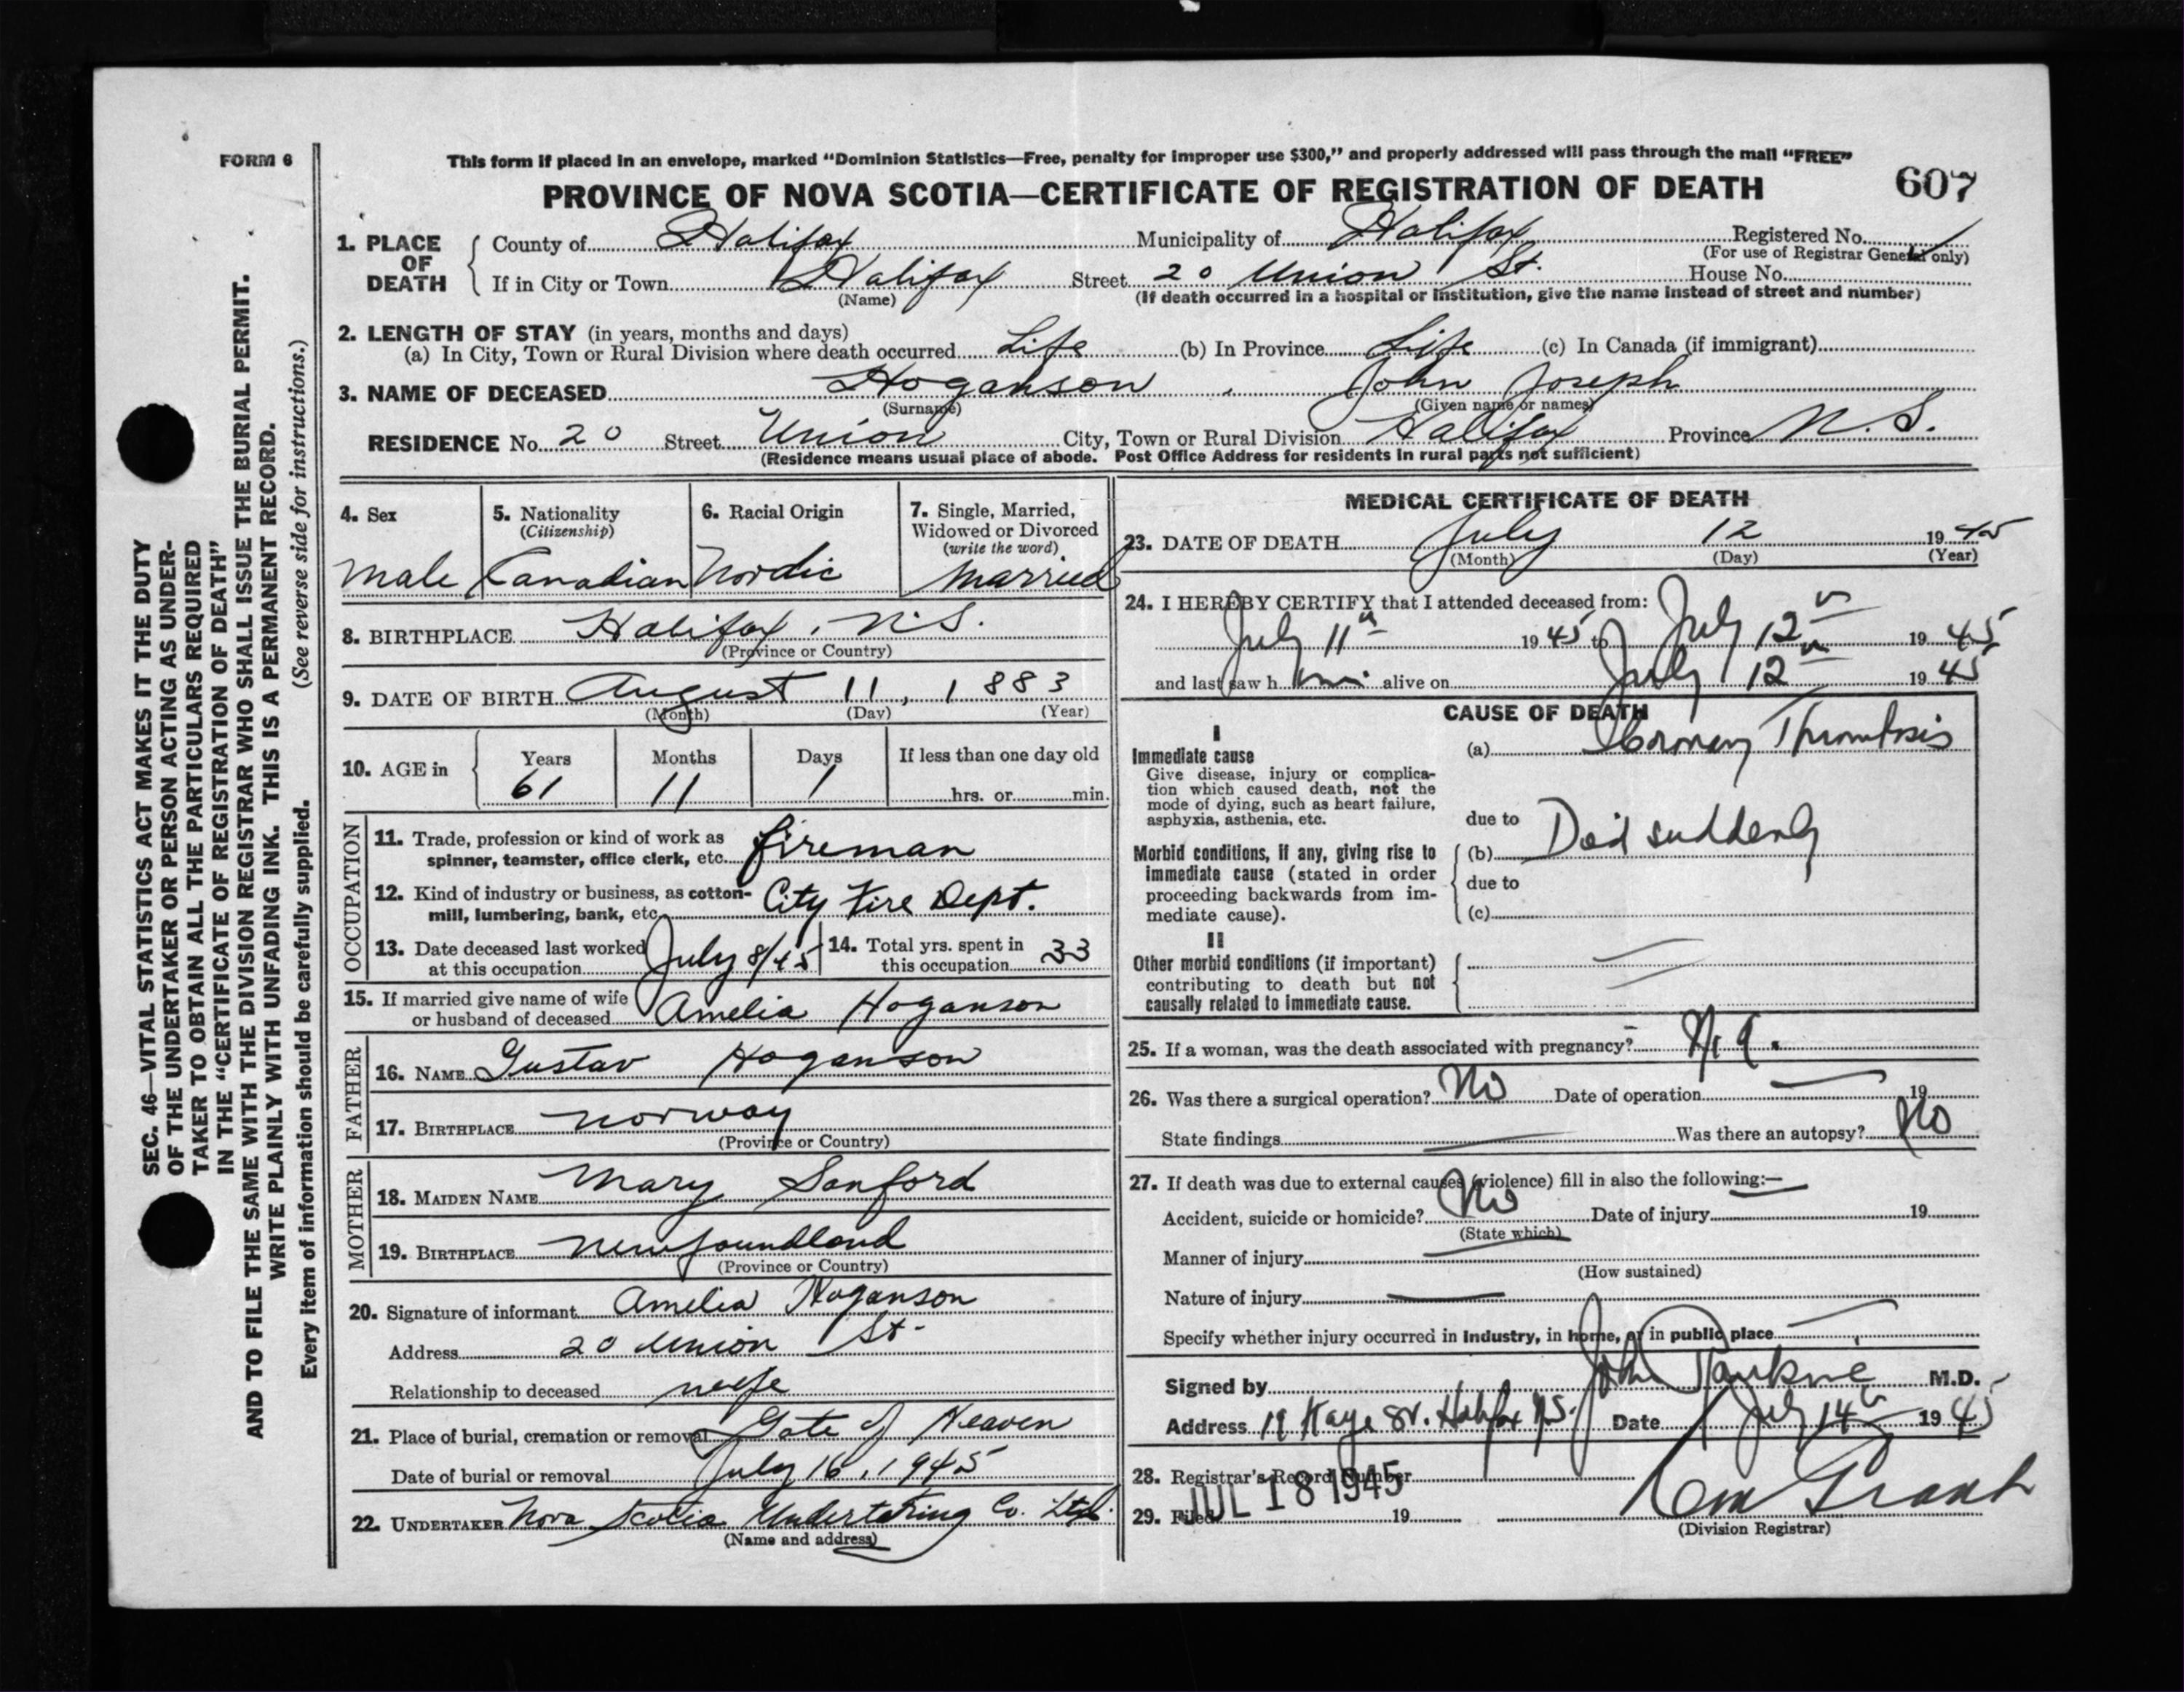 FORM 6
This form if placed in an envelope, marked “Dominion Statistics—Free, penalty for improper use $300,” and properly addressed will pass through the mail “FREE”
PROVINCE OF NOVA SCOTIA—CERTIFICATE OF REGISTRATION OF DEATH
607
1. PLACE OF DEATH
County of Halifax Municipality of Halifax Registered No.
(For use of Registrar General only)
If in City or Town Halifax Street 20 Union St. House No.
(Name) (If death occurred in a hospital or institution, give the name instead of street and number)
2. LENGTH OF STAY (in years, months and days)
(a) In City, Town or Rural Division where death occurred Life (b) In Province Life (c) In Canada (if immigrant)
3. NAME OF DECEASED Hoganson, John Joseph
(Surname) (Given name or names)
RESIDENCE No. 20 Street Union City, Town or Rural Division Halifax Province N.S.
(Residence means usual place of abode. Post Office Address for residents in rural parts not sufficient)
4. Sex
male
5. Nationality
(Citizenship)
Canadian
6. Racial Origin
Nordic
7. Single, Married,
Widowed or Divorced
(write the word)
Married
8. BIRTHPLACE Halifax, N.S.
(Province or Country)
9. DATE OF BIRTH August 11, 1883
(Month) (Day) (Year)
10. AGE in
Years Months Days If less than one day old
61 11 1 hrs. or min.
OCCUPATION
11. Trade, profession or kind of work as
spinner, teamster, office clerk, etc. fireman
12. Kind of industry or business, as cotton-
mill, lumbering, bank, etc. City Fire Dept.
13. Date deceased last worked
at this occupation July 8/45
14. Total yrs. spent in
this occupation 33
15. If married give name of wife
or husband of deceased Amelia Hoganson
FATHER
16. NAME Gustav Hoganson
17. BIRTHPLACE Norway
(Province or Country)
MOTHER
18. MAIDEN NAME Mary Sanford
19. BIRTHPLACE Newfoundland
(Province or Country)
20. Signature of informant Amelia Hoganson
Address 20 Union St.
Relationship to deceased
21. Place of burial, cremation or removal Gate of Heaven
Date of burial or removal July 16, 1945
22. UNDERTAKER Nova Scotia Undertaking Co. Ltd.
(Name and address)
MEDICAL CERTIFICATE OF DEATH
23. DATE OF DEATH July 12 1945
(Month) (Day) (Year)
24. I HEREBY CERTIFY that I attended deceased from:
July 11th 1945 to July 12th 1945
and last saw him alive on July 12th 1945
CAUSE OF DEATH
I
Immediate cause
Give disease, injury or complica-
tion which caused death, not the
mode of dying, such as heart failure,
asphyxia, asthenia, etc.
(a) Coronary Thrombosis
due to
Morbid conditions, if any, giving rise to
immediate cause (stated in order
proceeding backwards from im-
mediate cause).
(b) Died suddenly
due to
(c)
II
Other morbid conditions (if important)
contributing to death but not
causally related to immediate cause.
25. If a woman, was the death associated with pregnancy?
26. Was there a surgical operation? No Date of operation 19
State findings Was there an autopsy? No
27. If death was due to external causes (violence) fill in also the following:—
Accident, suicide or homicide? No Date of injury 19
(State which)
Manner of injury
(How sustained)
Nature of injury
Specify whether injury occurred in industry, in home, or in public place
Signed by John M.D.
Address 19 Kaye St. Halifax N.S. Date July 14th 1945
28. Registrar's Record Number
JUL 18 1945
29. Filed 19 Grant
(Division Registrar)
SEC. 46—VITAL STATISTICS ACT MAKES IT THE DUTY
OF THE UNDERTAKER OR PERSON ACTING AS UNDER-
TAKER TO OBTAIN ALL THE PARTICULARS REQUIRED
IN THE “CERTIFICATE OF REGISTRATION OF DEATH”
AND TO FILE THE SAME WITH THE DIVISION REGISTRAR WHO SHALL ISSUE THE BURIAL PERMIT.
WRITE PLAINLY WITH UNFADING INK. THIS IS A PERMANENT RECORD.
Every item of information should be carefully supplied. (See reverse side for instructions.)